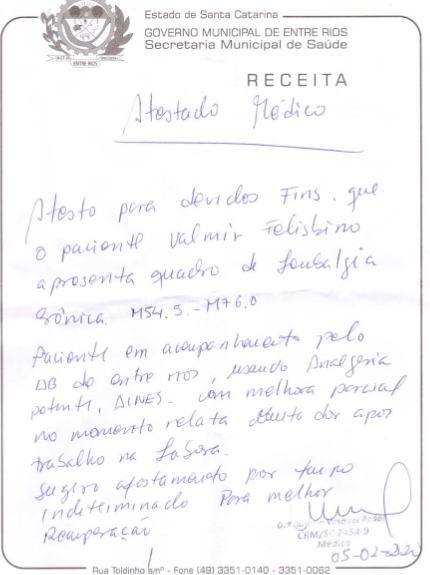 Estado de Santa Catarina
GOVERNO MUNICIPAL DE ENTRE RIOS
Secretaria Municipal de Saúde
ENTRE RIOS
RECEITA
Atestado Médico
Atesto para devidos Fins, que
o paciente Valmir Felisbino
apresenta quadro de Lombalgia
Crônica. M54.5 - M76.0
Paciente em acompanhamento pelo
de entre rios, usando Analgesia
potente, AINES. com melhora parcial
no momento relata Muita dor apos
trabalho na
Sugiro afastamento por tempo
indeterminado Para melhor
Recuperação
CRM/SC
Médico
05-02-
Rua Toldinho s/nº - Fone (49) 3351-0140 - 3351-0062